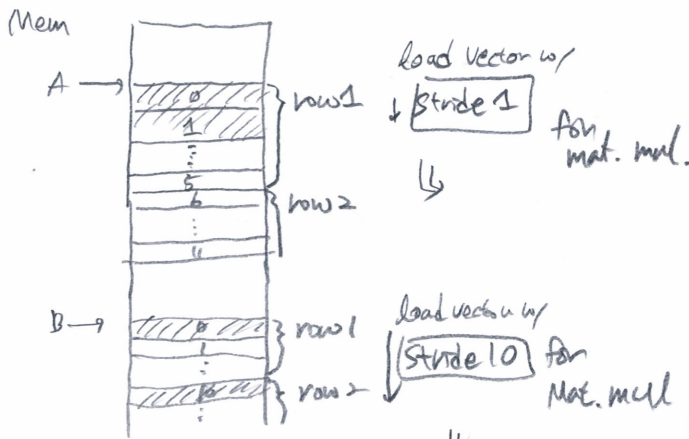 Mem
A →
0
1
5
6
11
row 1
row 2
load vector w/
Stride 1
for
mat. mul.
B →
0
1
10
row 1
row 2
load vector w/
Stride 10
for
Mat. mul